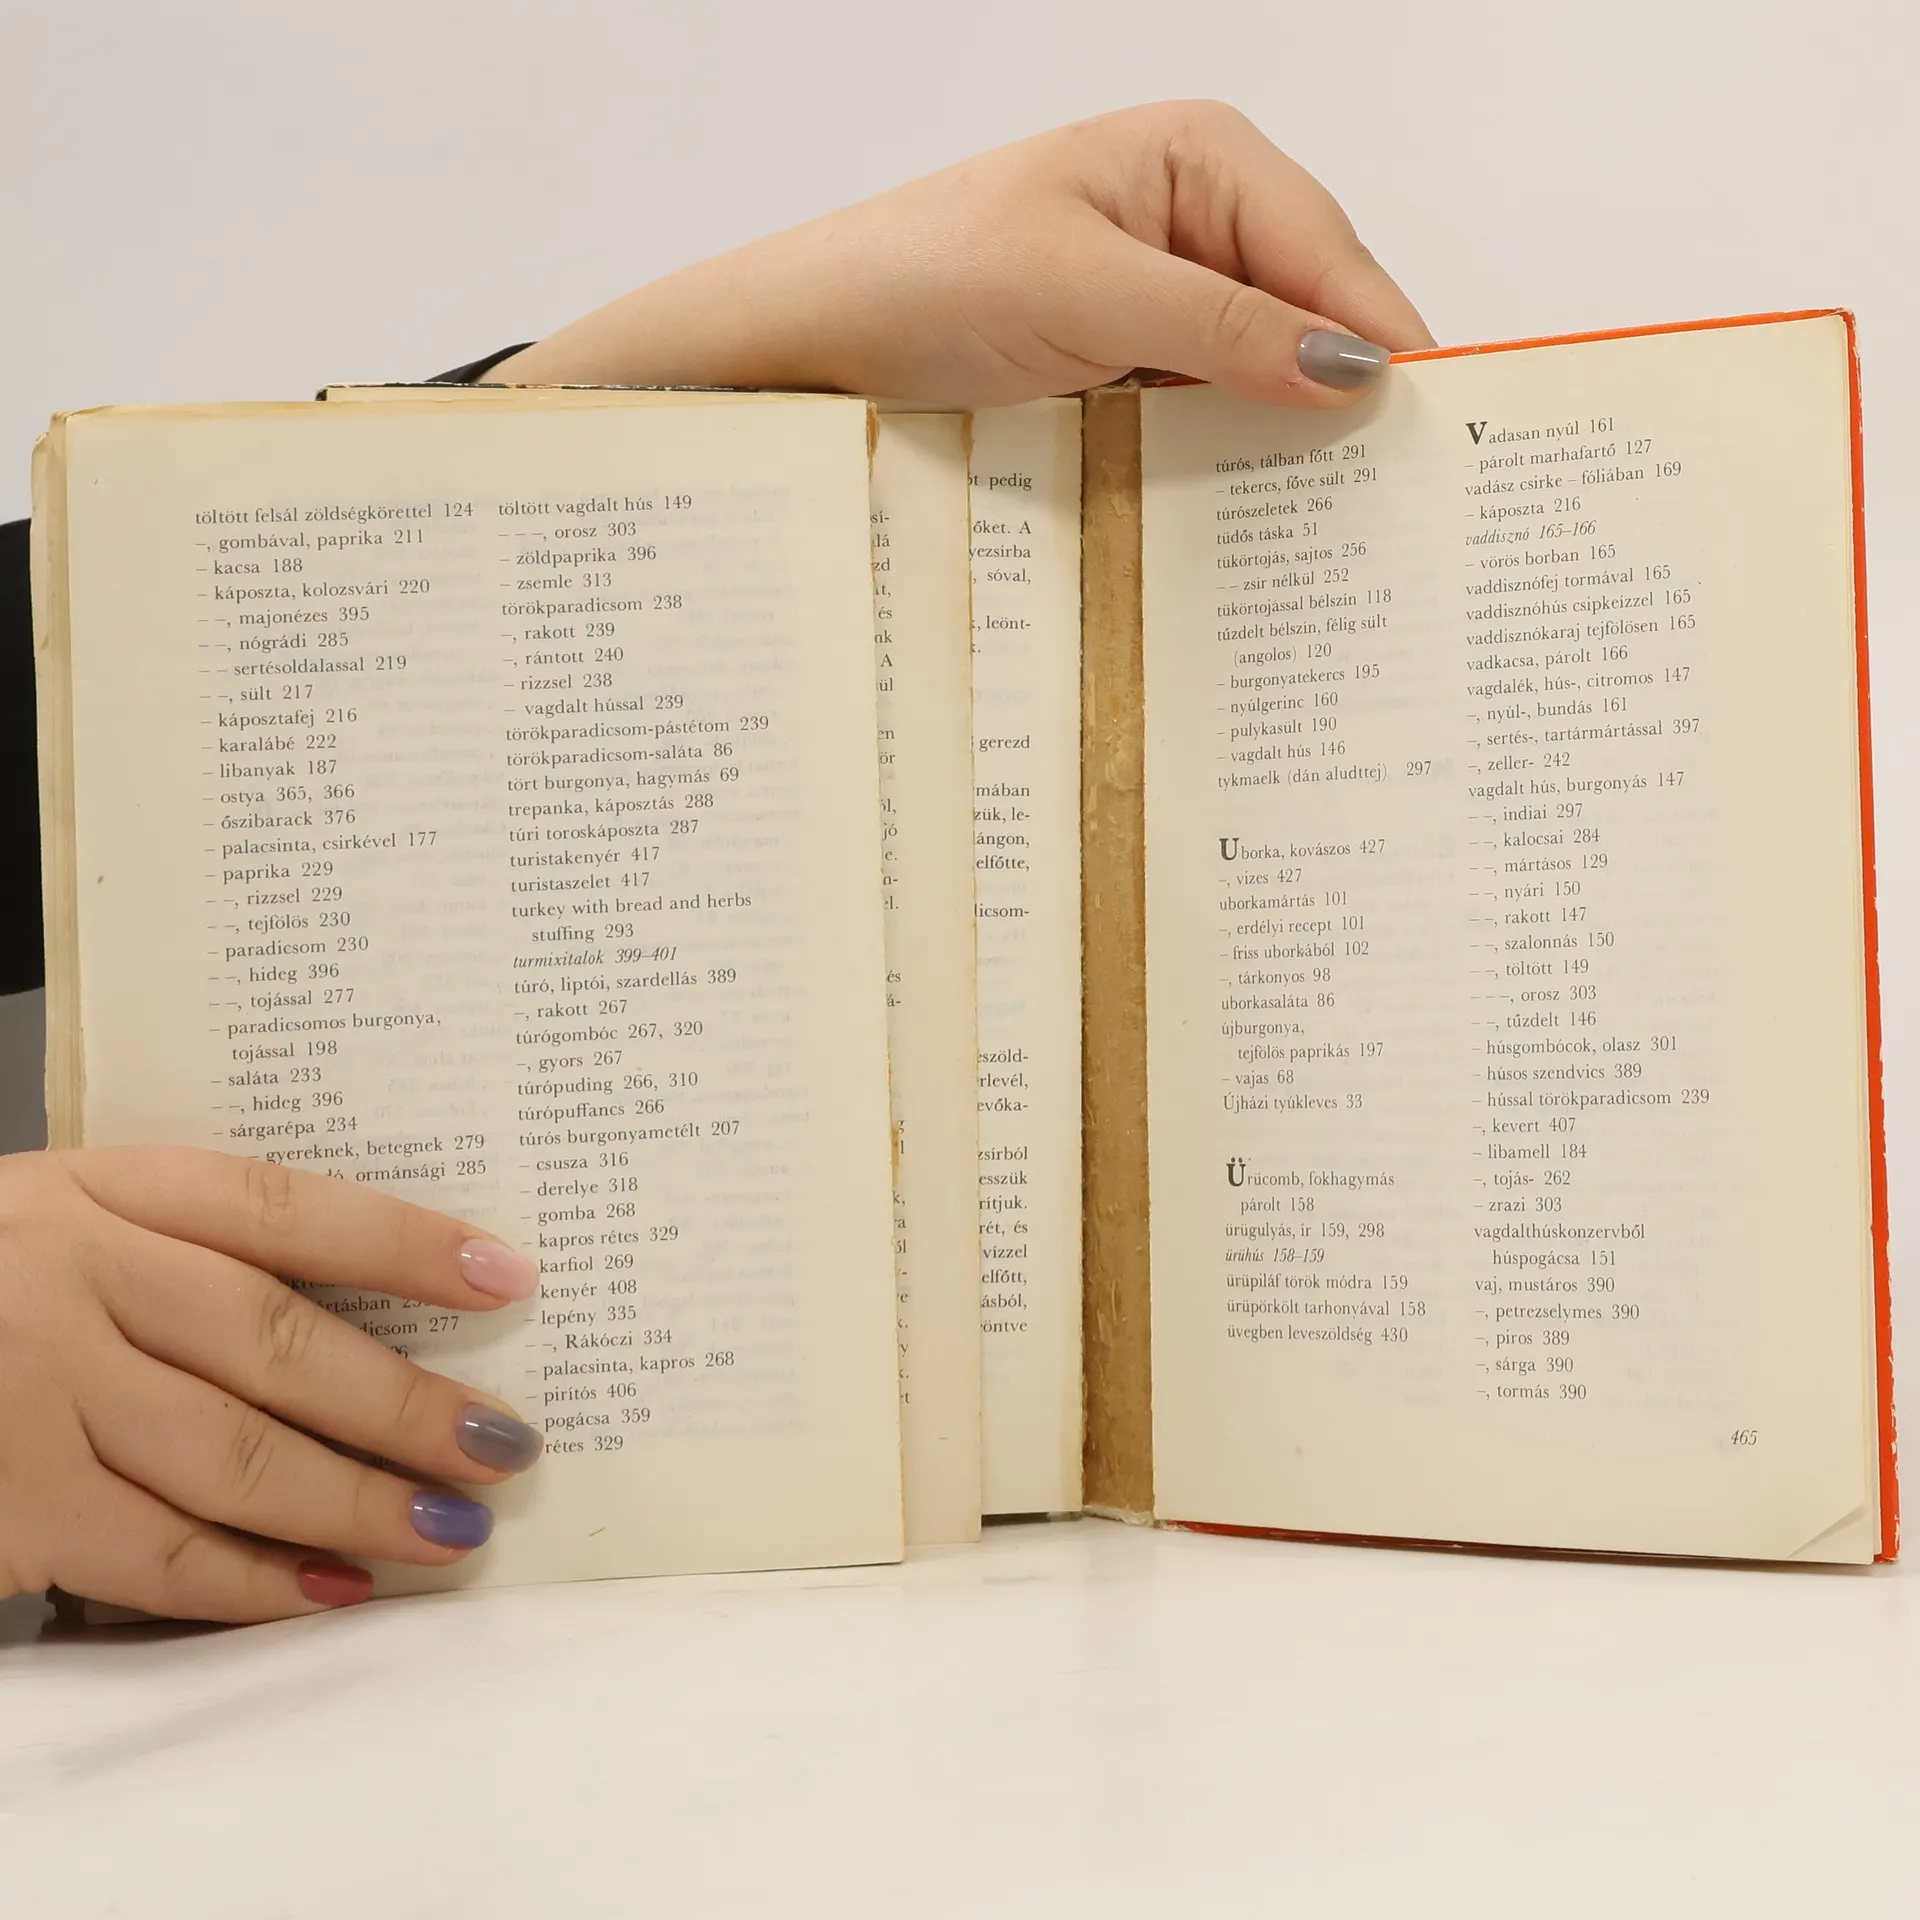 töltött felsál zöldségkörettel 124
–, gombával, paprika 211
– kacsa 188
– káposzta, kolozsvári 220
– –, majonézes 395
– –, nógrádi 285
– – sertésoldalassal 219
– –, sült 217
– káposztafej 216
– karalábé 222
– libanyak 187
– ostya 365, 366
– őszibarack 376
– palacsinta, csirkével 177
– paprika 229
– –, rizzsel 229
– –, tejfölös 230
– paradicsom 230
– –, hideg 396
– –, tojással 277
– paradicsomos burgonya,
tojással 198
– saláta 233
– –, hideg 396
– sárgarépa 234
– gyereknek, betegnek 279
ormánsági 285
ártásban
dicsom 277
töltött vagdalt hús 149
– – –, orosz 303
– zöldpaprika 396
– zsemle 313
törökparadicsom 238
–, rakott 239
–, rántott 240
– rizzsel 238
– vagdalt hússal 239
törökparadicsom-pástétom 239
törökparadicsom-saláta 86
tört burgonya, hagymás 69
trepanka, káposztás 288
túri toroskáposzta 287
turistakenyér 417
turistaszelet 417
turkey with bread and herbs
stuffing 293
turmixitalok 399–401
túró, liptói, szardellás 389
–, rakott 267
túrógombóc 267, 320
–, gyors 267
túrópuding 266, 310
túrópuffancs 266
túrós burgonyametélt 207
– csusza 316
– derelye 318
– gomba 268
– kapros rétes 329
karfiol 269
kenyér 408
– lepény 335
– –, Rákóczi 334
– palacsinta, kapros 268
– pirítós 406
– pogácsa 359
rétes 329
sí-
lá
zd
át,
és
nk
A
ül
en
ör
ól,
jó
e.
n-
el.
és
á-
g
l
k,
ra
ől
y-
e
k.
y
k.
t
ót pedig
őket. A
yezsírba
, sóval,
k, leönt-
k.
gerezd
mában
zük, le-
ángon,
elfőtte,
dicsom-
eszöld-
rlevél,
evőka-
zsírból
esszük
rítjuk.
rét, és
vízzel
elfőtt,
ásból,
öntve
túrós, tálban főtt 291
– tekercs, főve sült 291
túrószeletek 266
tüdős táska 51
tükörtojás, sajtos 256
– – zsír nélkül 252
tükörtojással bélszín 118
tűzdelt bélszín, félig sült
(angolos) 120
– burgonyatekercs 195
– nyúlgerinc 160
– pulykasült 190
– vagdalt hús 146
tykmaelk (dán aludttej) 297
Uborka, kovászos 427
–, vizes 427
uborkamártás 101
–, erdélyi recept 101
– friss uborkából 102
–, tárkonyos 98
uborkasaláta 86
újburgonya,
tejfölös paprikás 197
– vajas 68
Újházi tyúkleves 33
Ürücomb, fokhagymás
párolt 158
ürügulyás, ír 159, 298
ürühús 158–159
ürüpiláf török módra 159
ürüpörkölt tarhonyával 158
üvegben leveszöldség 430
Vadasan nyúl 161
– párolt marhafartő 127
vadász csirke – fóliában 169
– káposzta 216
vaddisznó 165–166
– vörös borban 165
vaddisznófej tormával 165
vaddisznóhús csipkeízzel 165
vaddisznókaraj tejfölösen 165
vadkacsa, párolt 166
vagdalék, hús-, citromos 147
–, nyúl-, bundás 161
–, sertés-, tartármártással 397
–, zeller- 242
vagdalt hús, burgonyás 147
– –, indiai 297
– –, kalocsai 284
– –, mártásos 129
– –, nyári 150
– –, rakott 147
– –, szalonnás 150
– –, töltött 149
– – –, orosz 303
– –, tűzdelt 146
– húsgombócok, olasz 301
– húsos szendvics 389
– hússal törökparadicsom 239
–, kevert 407
– libamell 184
–, tojás- 262
– zrazi 303
vagdalthúskonzervből
húspogácsa 151
vaj, mustáros 390
–, petrezselymes 390
–, piros 389
–, sárga 390
–, tormás 390
465